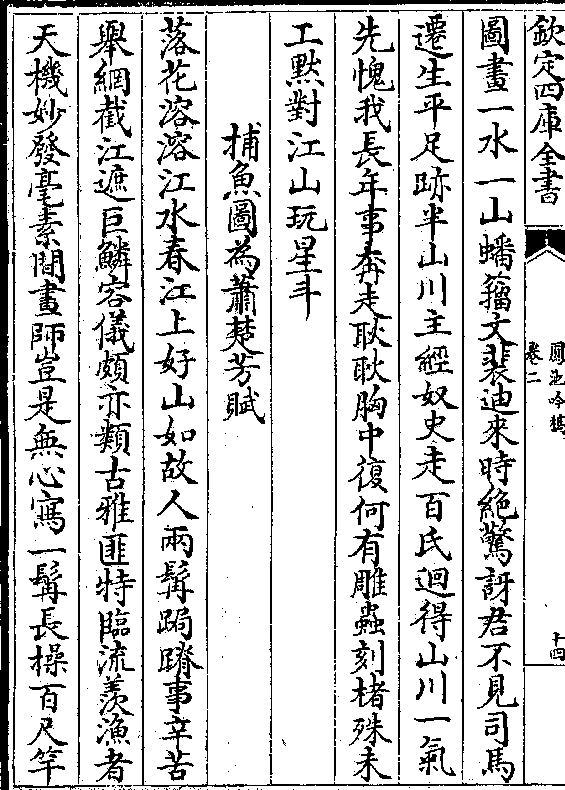 欽定四庫全書
鳳池吟稿
卷二
十四
圖畫一水一山蟠籀文裴迪來時絶驚訝君不見司馬
遷生平足跡半山川主經奴史走百氏迴得山川一氣
先愧我長年事奔走耿耿胸中復何有雕蟲刻楮殊未
工黙對江山玩星斗
捕魚圖為蕭楚芳賦
落花溶溶江水春江上好山如故人兩髯跼蹐事辛苦
舉網截江遮巨鱗容儀頗亦類古雅匪特臨流羨漁者
天機妙發毫素間畫師豈是無心寫一髯長操百尺竿